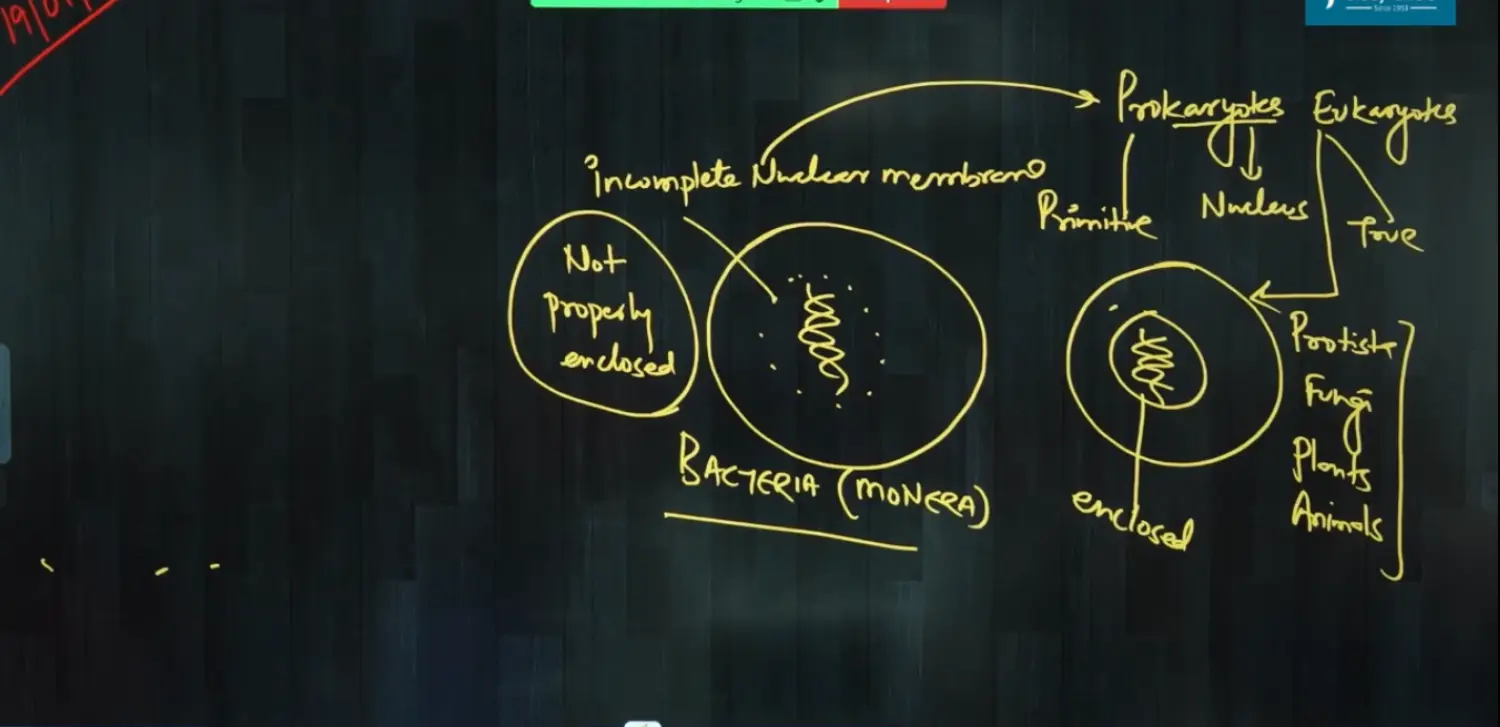 19/01/
Since 1953
Prokaryotes Eukaryotes
Incomplete Nuclear membrane
Primitive
Nucleus
True
Not
properly
enclosed
Protista
Fungi
Plants
Animals
BACTERIA (MONERA)
enclosed